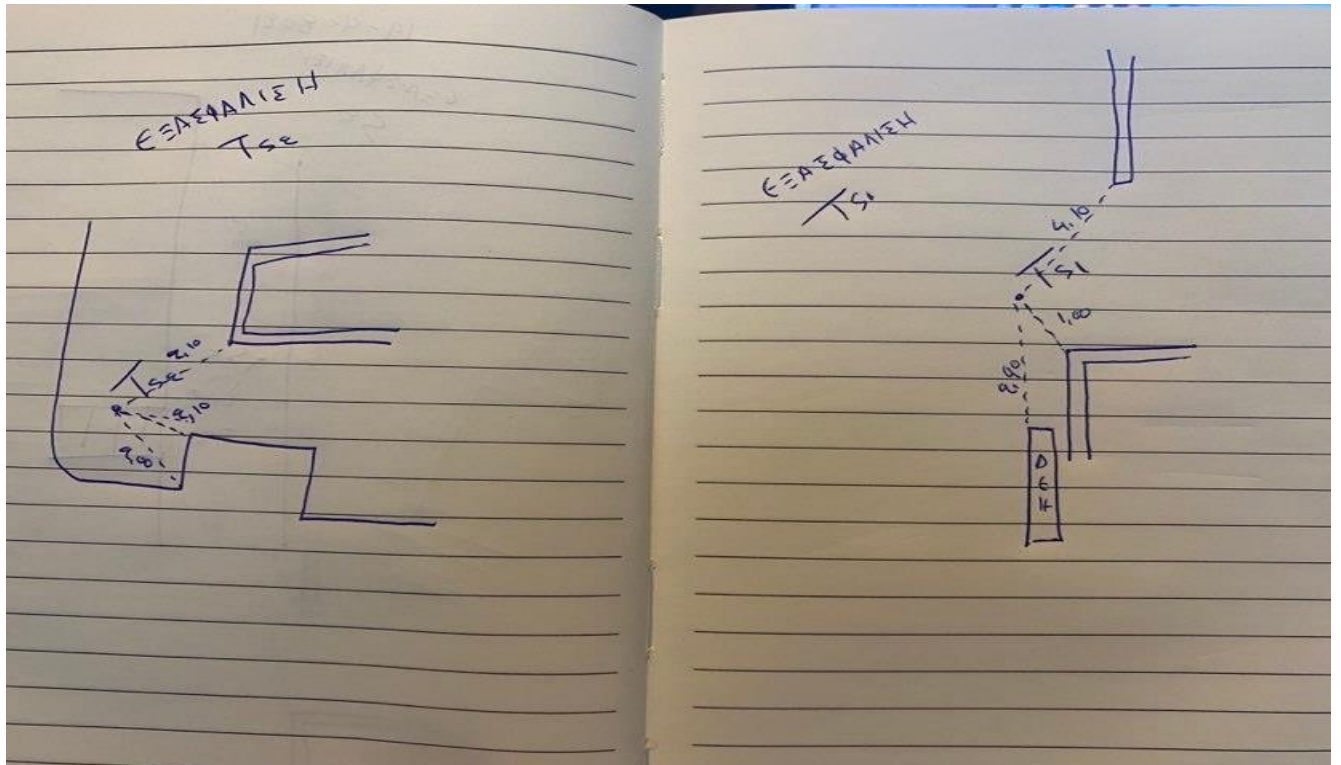 ΕΞΑΣΦΑΛΙΣΗ
TS2
2,10
TS2
2,10
2,00
ΕΞΑΣΦΑΛΙΣΗ
TS1
4,10
TS1
1,00
2,90
ΔΕΗ